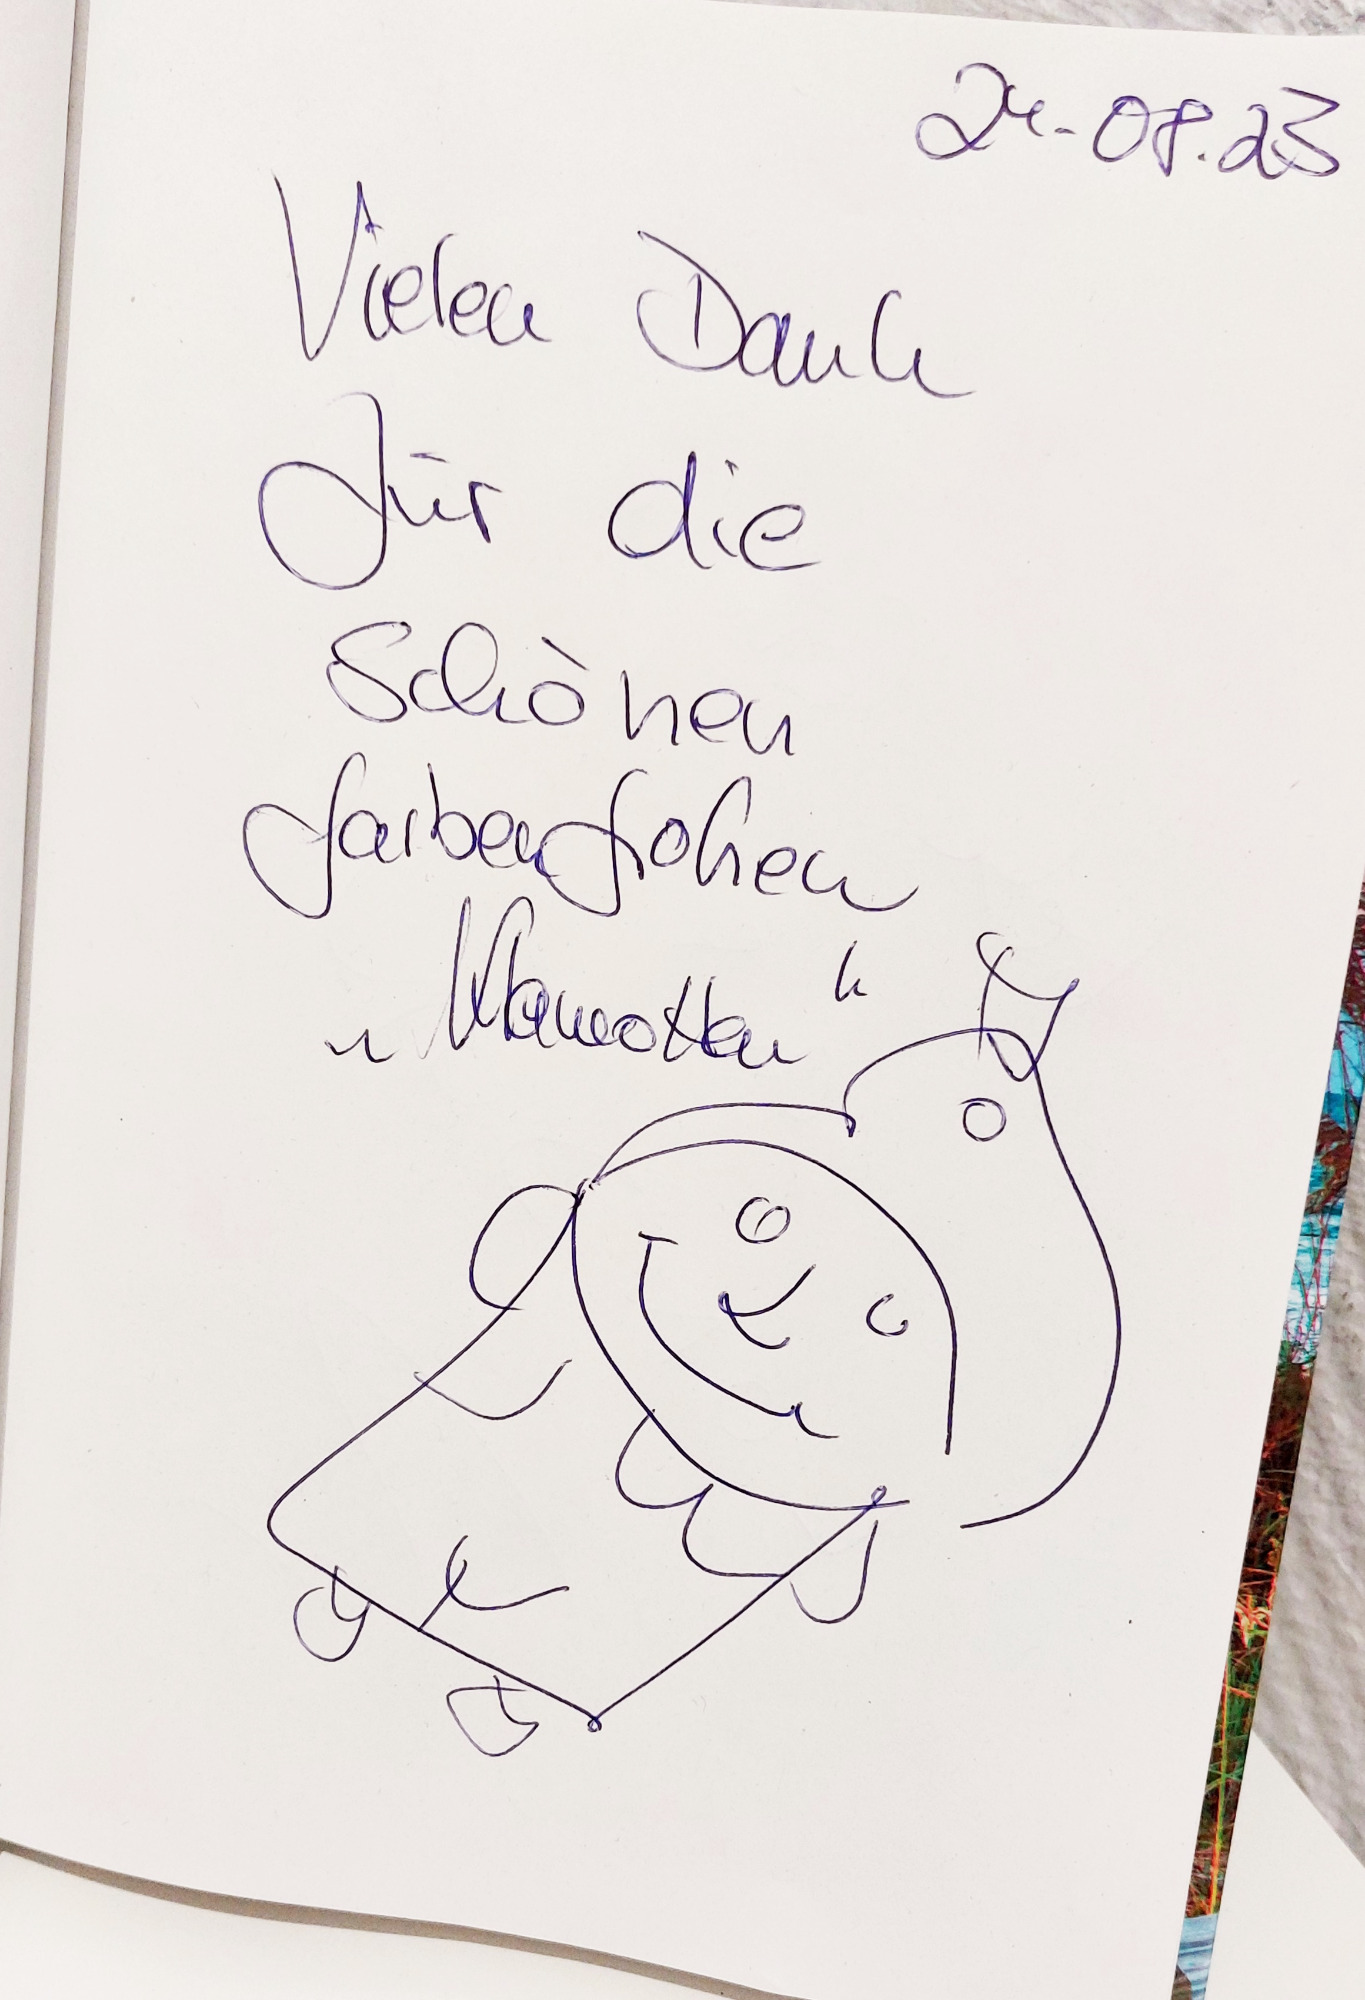 24.08.23
Vielen Dank
für die
schönen
farbenfrohen
"Klamotten"